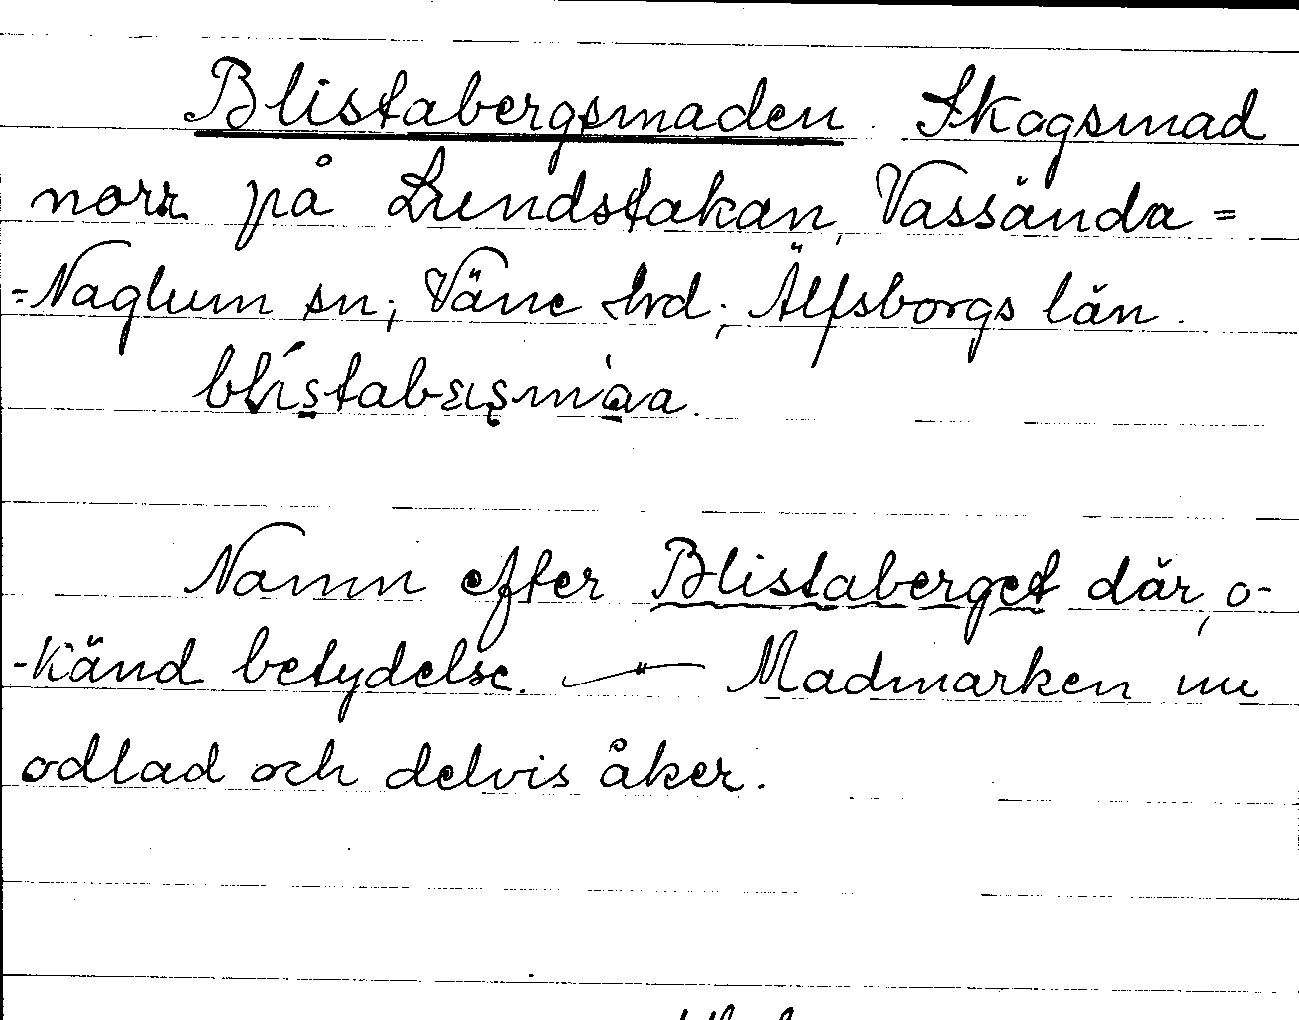 Blistabergsmaden. Skogsmad
norr på Lundstakan, Vassända=
=Naglum sn; Väne hrd; Älfsborgs län.

Namn efter Blistaberget där, o-
-känd betydelse. — " — Madmarken nu
odlad och delvis åker.